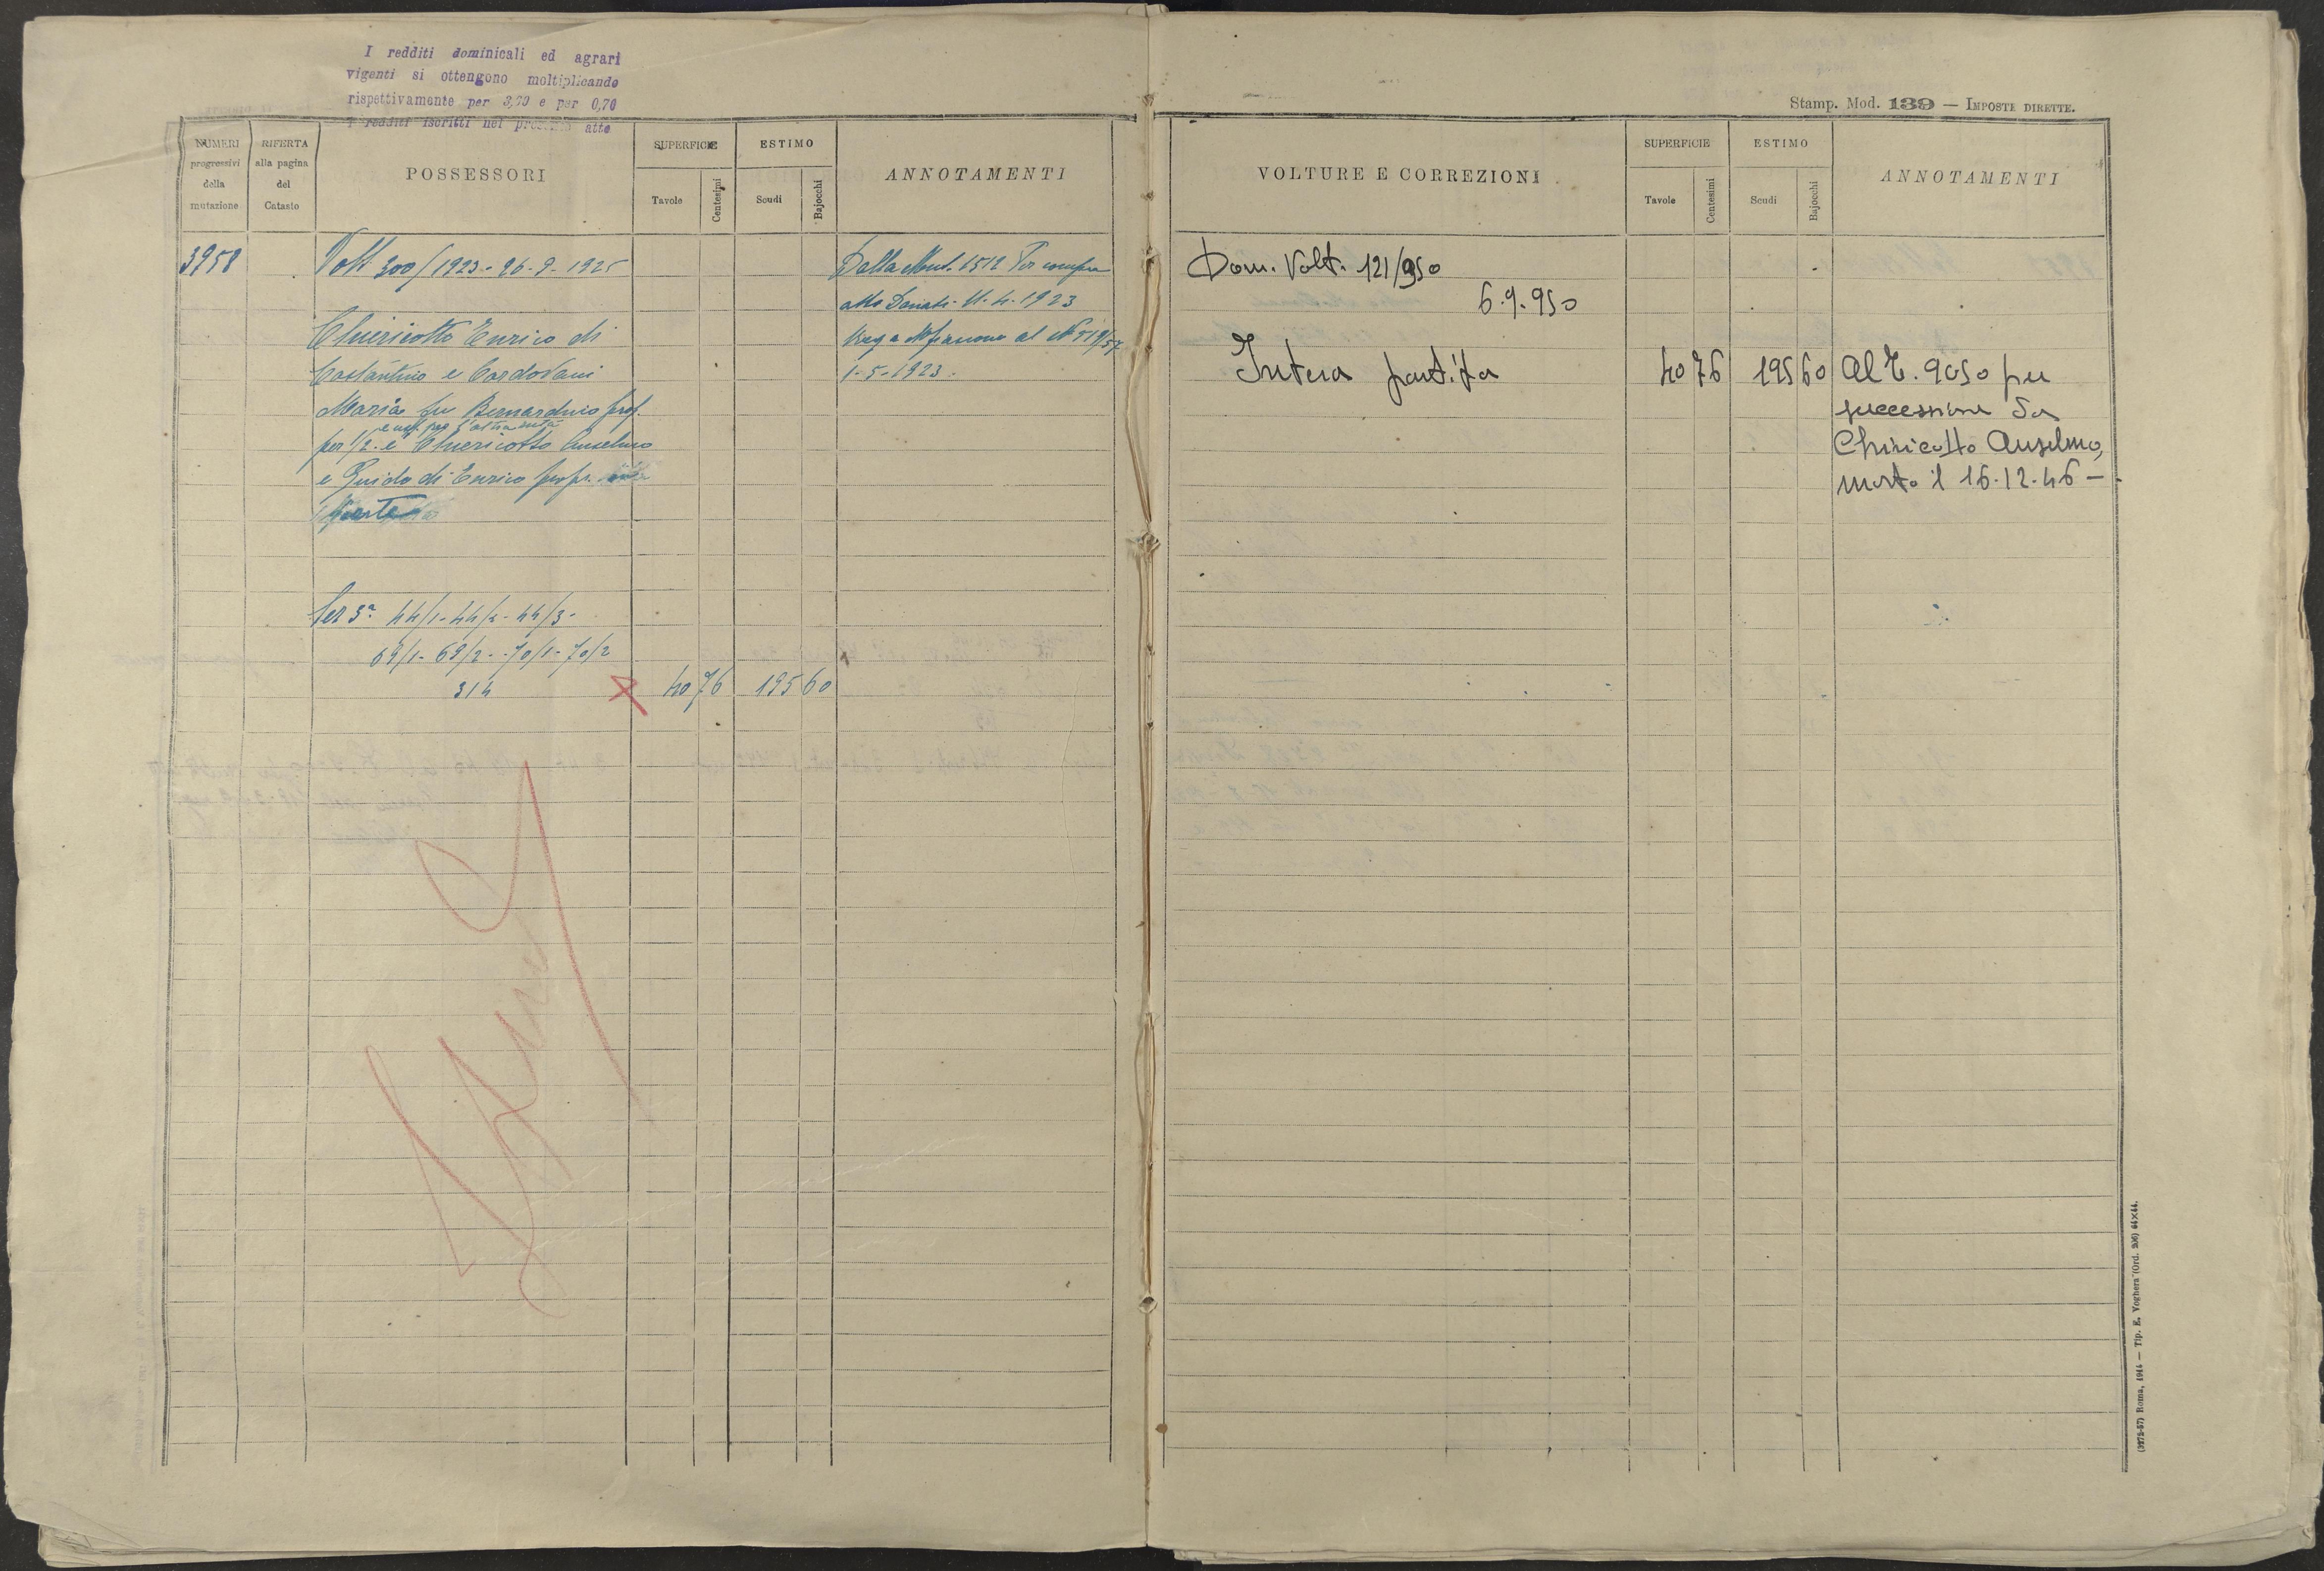 I redditi dominicali ed agrari
vigenti si ottengono moltiplicando
rispettivamente per 3,70 e per 0,70
I redditi iscritti nel presente atto
NUMERI
progressivi
della
mutazione
RIFERTA
alla pagina
del
Catasto
POSSESSORI
SUPERFICIE
Tavole
Centesimi
ESTIMO
Scudi
Bajocchi
ANNOTAMENTI
3958
Volt 300/1923 - 26-9-1925
Chiericotto Enrico di
Costantino e Cordovani
Maria fu Bernardino prop.
e usf. per l'altra metà
per 1/2 e Chiericotto Anselmo
e Guido di Enrico propr.
Sez 3ª 44/1-44/2-44/3-
69/1-69/2-70/1-70/2
314
40 76 195 60
Dalla Mut. 1512 Per compra
atto Donati 11-4-1923
Reg a al N 519/57
1-5-1923.
Stamp. Mod. 139 — IMPOSTE DIRETTE.
VOLTURE E CORREZIONI
SUPERFICIE
Tavole
Centesimi
ESTIMO
Scudi
Bajocchi
ANNOTAMENTI
Dom. Volt. 121/950
6.9.950
Intera partita 40 76 195 60
Al T. 9050 per
successione da
Chiricotto Anselmo,
morto il 16.12.46 —
(3272-57) Roma, 1914 — Tip. E. Voghera (Ord. 206) 64×44.